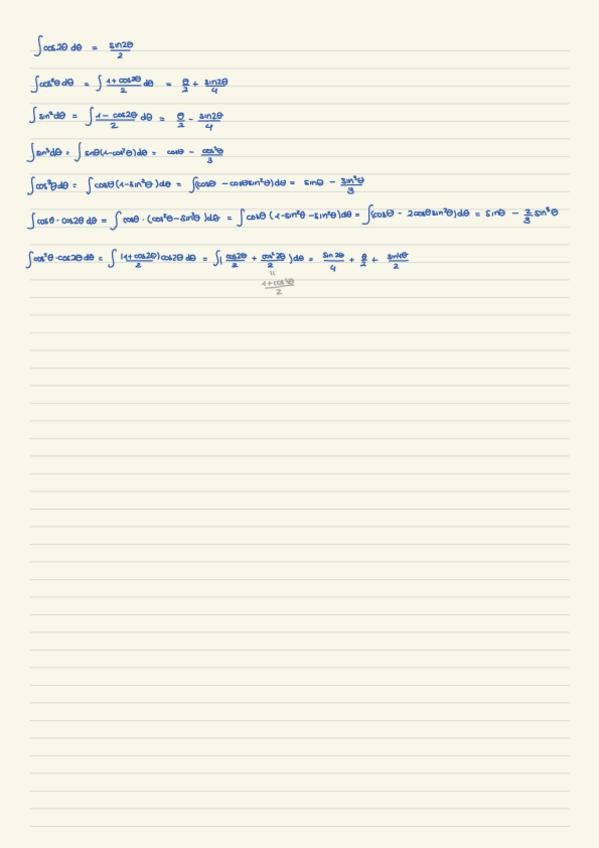 ∫cos2θ dθ = sin2θ/2
∫cos²θ dθ = ∫ (1+cos2θ)/2 dθ = θ/2 + sin2θ/4
∫sin²dθ = ∫ (1-cos2θ)/2 dθ = θ/2 - sin2θ/4
∫sin³dθ = ∫ sinθ(1-cos²θ)dθ = cosθ - cos³θ/3
∫cos³θdθ = ∫cosθ(1-sin²θ)dθ = ∫(cosθ - cosθsin²θ)dθ = sinθ - sin³θ/3
∫cosθ·cos2θ dθ = ∫ cosθ·(cos²θ-sin²θ)dθ = ∫ cosθ (1-sin²θ-sin²θ)dθ = ∫(cosθ - 2cosθsin²θ)dθ = sinθ - 2/3 sin³θ
∫cos²θ·cos2θ dθ = ∫ (1+cos2θ)/2 cos2θ dθ = ∫( cos2θ/2 + cos²2θ/2 )dθ = sin2θ/4 + θ/2 + sin4θ/2
=
(1+cos4θ)/2